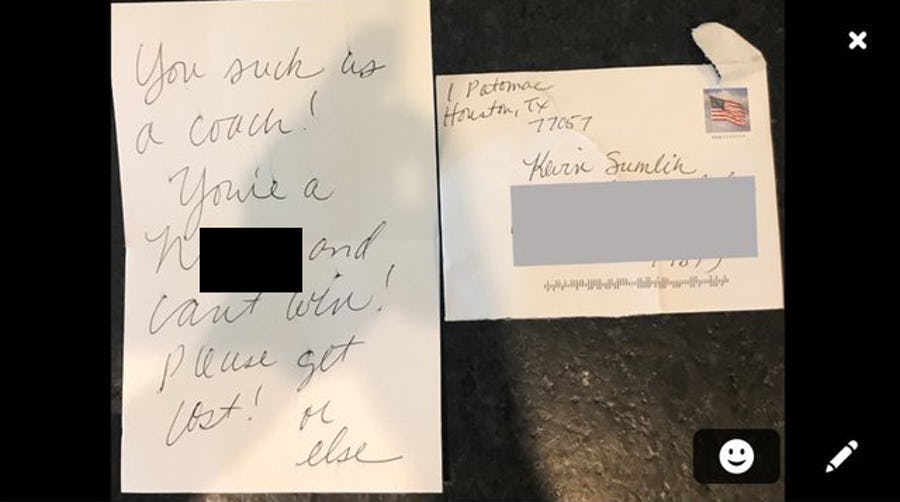 You suck as
a coach!
You're a
n
and
can't win!
Please get
lost! or
else
1 Potomac
Houston, Tx
77057
Kevin Sumlin